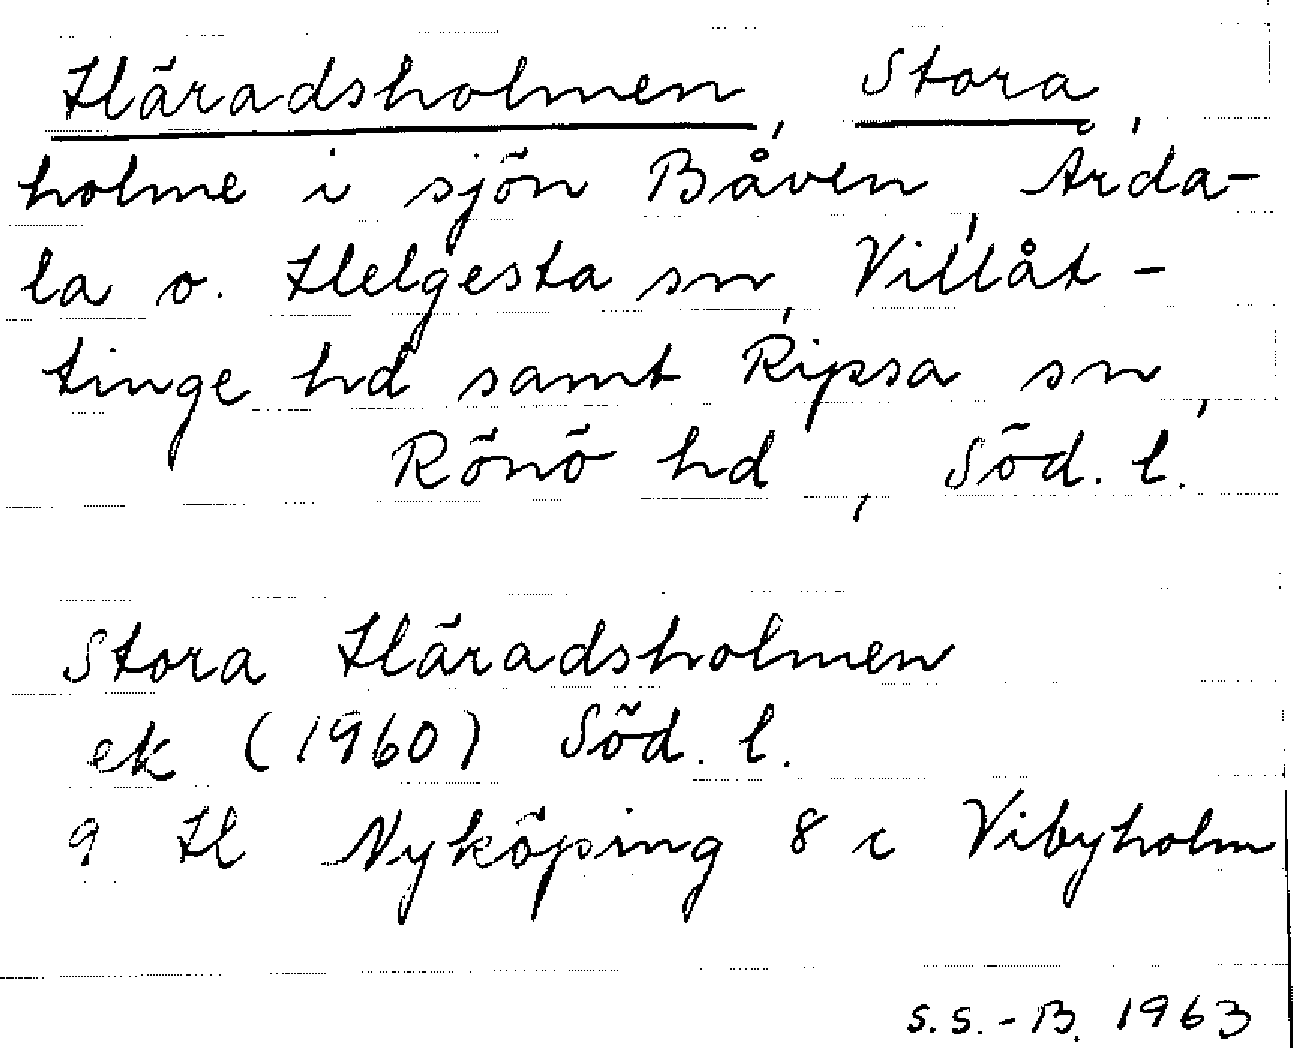 Häradsholmen, Stora,
holme i sjön Båven, Årda-
la o. Helgesta sn, Villåt-
tinge hd samt Ripsa sn,
Rönö hd, Söd. l.
Stora Häradsholmen
ek (1960) Söd. l.
9 H Nyköping 8 c Vibyholm
S.S.-B. 1963